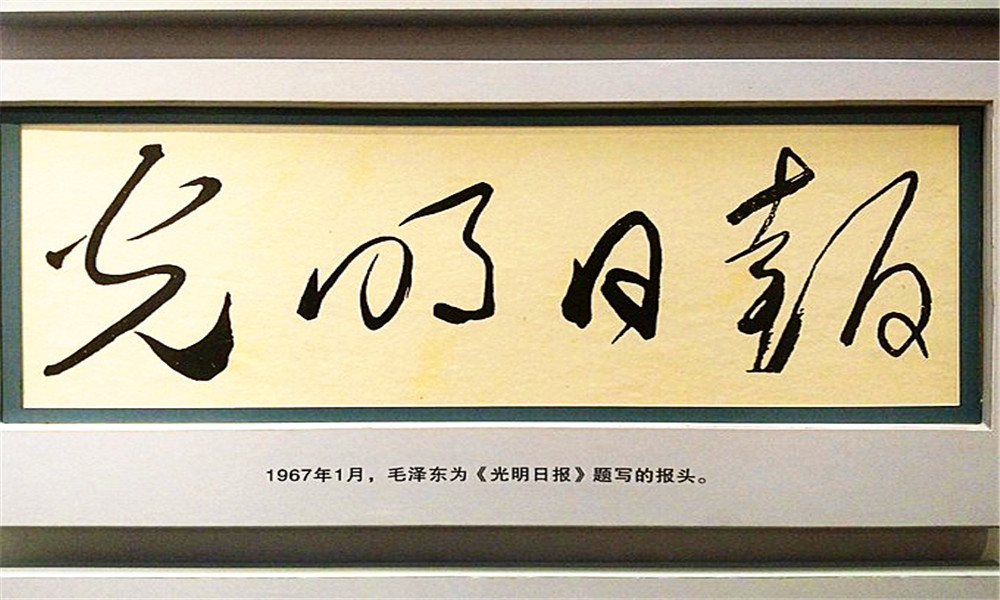 光明日報
1967年1月，毛泽东为《光明日报》题写的报头。